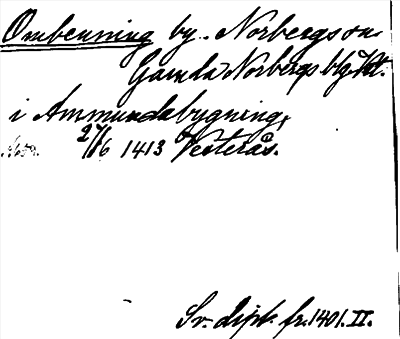 Ombenning by. Norbergs sn.
Gamla Norbergs blg. Vtl.
i Ammundabygning,
27/6 1413 Vesterås.
Sv. dipl. fr. 1401. II.